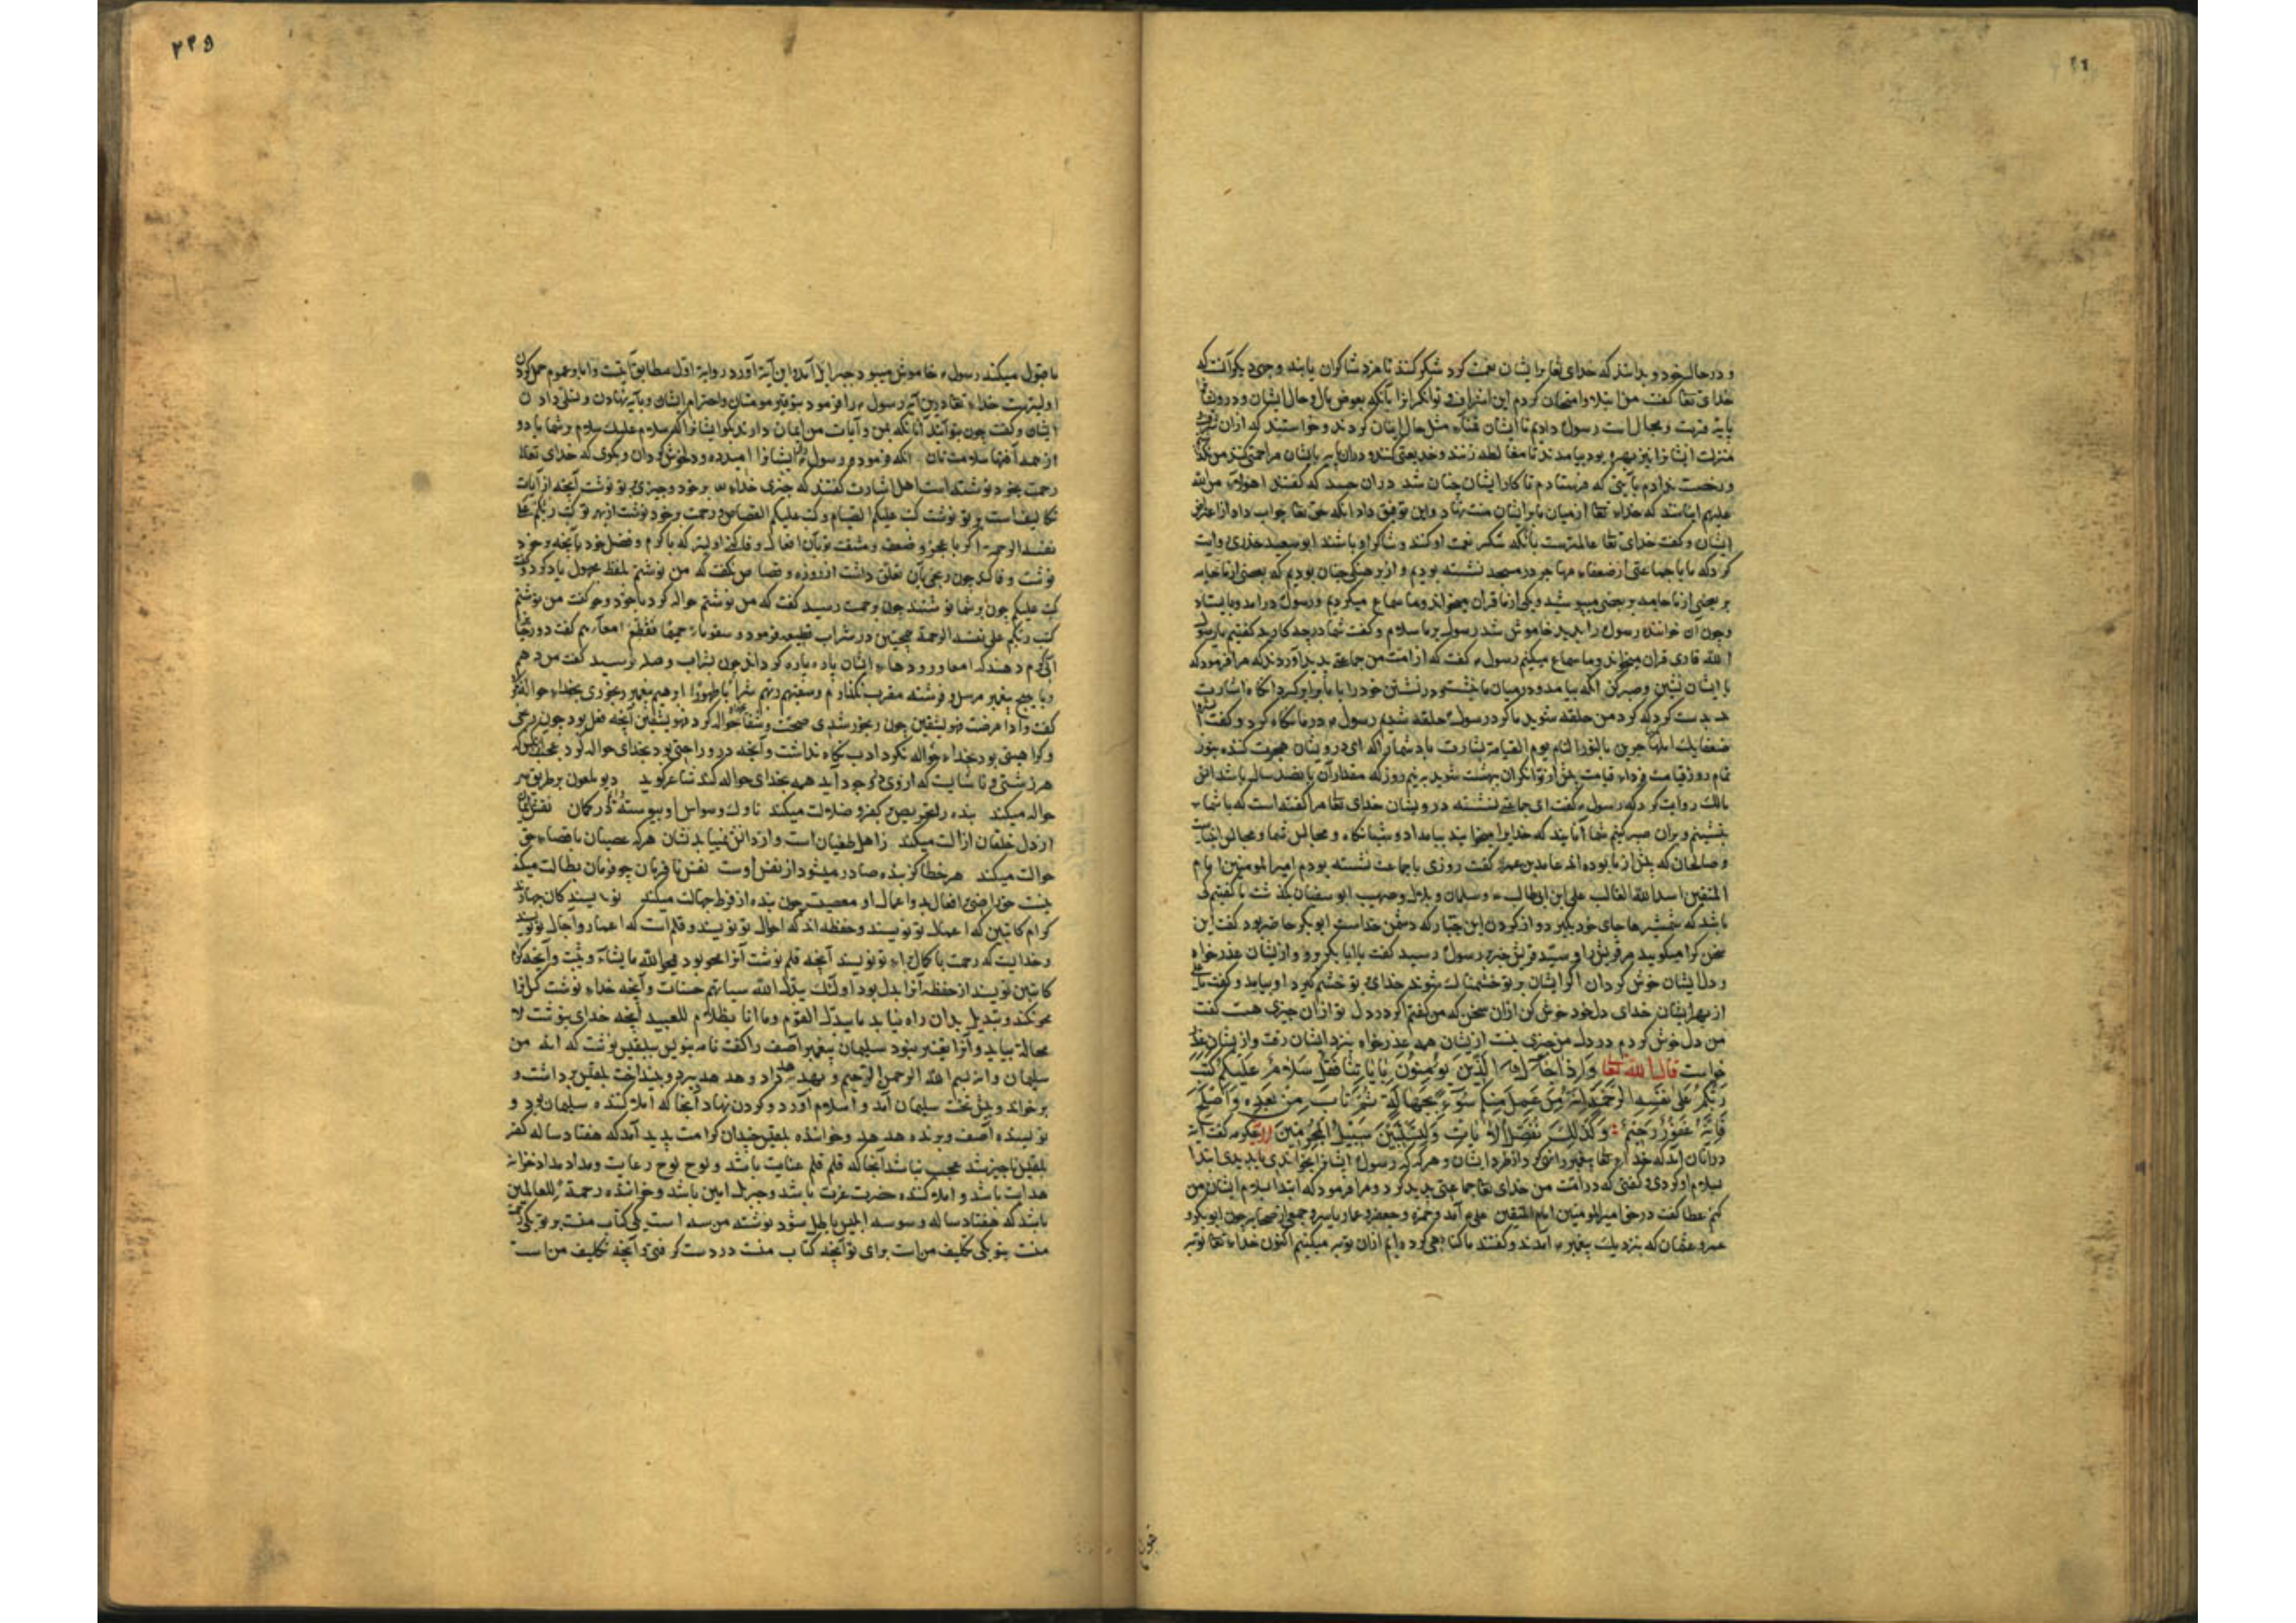 و در حال خود و بدانند که خدای تعا بر ایشان نعمت کرد شکر کنند تا مزد شاکران یابند و وجهی دیکر آنست که
خدای تعا کفت من ابتلا و امتحان کردم این اشراف و توانکرانرا بآنکه بعوض مال و حال ایشان و درویشا
پایه قربت و مجالست رسول دادم تا ایشان تمناء مثل حال ایشان کردند و خواستند که ازان
منزلت ایشانرا نیز بهره بود بیامدند تا مغالطه زنند و خدیعتی کنند و دران بایشان مزاحمتی کنند من
رخصت ندادم بآیتی که فرستادم تا کار ایشان چنان شد دران حسد که کفتند اهولاء من الله
علیهم اینانند که خداء تعا از میان ما بر ایشان منت نهاد و این توفیق داد آنکه حق تعا جواب داد از
ایشان و کفت خدای تعا عالمترست بآنکه شکر نعمت او کند و شاکر او باشند ابو سعید خدری روایت
کرد که ما با جماعتی از ضعفاء مهاجر در مسجد نشسته بودیم و از برهنکی چنان بودیم که بعضی از ما جامه
بر بعضی از ما جامه بر بعضی میپوشید و یکی از ما قران میخواند و ما سماع میکردیم و رسول درآمد و بایستاد
و چون آن خواننده رسول را بدید خاموش شد رسول بر ما سلام و کفت شما در چه کارید کفتیم یا رسول
الله قاری قران میخواند و ما سماع میکنیم رسول کفت که از امت من جماعتی پدید آوردند که مرا فرمود که
با ایشان نشین و صبر کن آنکه بیامد و در میان ما بنشست و در نشستن خود را با ما برابر کرد آنکاه اشارت
بدست کرد که کرد من حلقه شوید ما کرد رسول حلقه شدیم رسول در ما نکاه کرد و کفت
ضعفا المهاجرین بالنور التام یوم القیامة بشارت باد شما را که ای درویشان هجرت کننده بنور
تمام روز قیامت فرداء قیامت پیش از توانکران ببهشت شوید به نیم روز که مقدار آن پانصد سال باشد انس
مالک روایت کرد که رسول کفت ای جماعتی درویشان خدای تعا مرا کفتست که با شما
بنشینم و بران صبر کنم شما آنانید که خدایرا میخوانید بامداد و شبانکاه و مجالس شما و مجالس انبیاست
و صالحان که پیش از ما بوده اند عابد بن کفت روزی با جماعت نشسته بودم امیر المومنین امام
المتقین اسد الله الغالب علی ابن ابی طالب و سلمان و بلال و صهیب ابو سفیان بکذشت ما کفتیم کی
باشد که شمشیرها جای خود بکیرد از کردن این جبار که دشمن خداست ابوبکر حاضر بود کفت این
سخن کرا میکویید مر قریش را و سید قریش خبر برسول رسید کفت یا ابا بکر برو و ازیشان عذر خواه
و دل ایشان خوش کردان اکر ایشان بر تو خشمناک شوند خدای بر تو خشم کیرد او بیامد و کفت
از بهر ایشان خدای دل خود خوش کن ازان سخن که من کفتم اکر در دل تو ازان چیزی هست کفت
من دل خوش کردم در دل من چیزی نیست ازیشان همه عذر خواه بنزد ایشان رفت و ازیشان عذر
خواست قال الله تعا وَإِذَا جَاءَكَ الَّذِينَ يُؤْمِنُونَ بِآيَاتِنَا فَقُلْ سَلَامٌ عَلَيْكُمْ كَتَبَ
رَبُّكُمْ عَلَى نَفْسِهِ الرَّحْمَةَ أَنَّهُ مَنْ عَمِلَ مِنْكُمْ سُوءً بِجَهَالَةٍ ثُمَّ تَابَ مِنْ بَعْدِهِ وَأَصْلَحَ
فَإِنَّهُ غَفُورٌ رَحِيمٌ وَكَذَلِكَ نُفَصِّلُ الْآيَاتِ وَلِتَسْتَبِينَ سَبِيلُ الْمُجْرِمِينَ عکرمه کفت آیه
در آنان آمد که خداء تعا پیغمبر را نهی کرد از طرد ایشان و هر که که رسول ایشانرا بدیدی ابتدا
بسلام او کردی و کفتی که در امت من خدای تعا جماعتی پدید کرد و مرا فرمود که ابتدا بسلام ایشان من
کنم عطا کفت در حق امیر المومنین امام المتقین علی آمد و حمزه و جعفر و عمار یاسر و جمعی از صحابه چون ابوبکر و
عمر و عثمان که بنزدیک پیغمبر آمدند و کفتند ما کناهی کرده ایم ازان توبه میکنیم اکنون خداء تعا توبه
چون
۲۳۵
ما قبول میکند رسول خاموش میبود جبرئیل آمد و این آیه آورد روایة اول مطابق آیتست و اما بر عموم حمل کردن
اولیترست خداء تعا درین آیه رسول را فرمود بتوقیر مومنان و احترام ایشان و پایه نهادن و تسلی دادن
ایشان و کفت چون بتو آیند آنانکه بمن و آیات من ایمان دارند بکو ایشانرا که سلام علیک سلام بر شما باد و
از همه آفتها سلامتتان آنکه فرمود رسول را ایشانرا امید ده و دلخوش کردان و بکوی که خدای تعالا
رحمت بر خود نوشتست اهل اشارت کفتند که چیزی خداء بر خود و چیزی بر تو نوشت آنچه از آیات
تکالیفست بر تو نوشت کتب علیکم الصیام و کتب علیکم القصاص و رحمت بر خود نوشت از بهر تو کتب ربکم علی
نفسه الرحمة اکر با عجز و ضعف و مشقت تو بآن وفا کنی اولیتر که با کرم و فضل خود بآنچه وجود
نوشت وفا کند چون رنجی بآن تعلق داشت از روزه و قصاص نکفت که من نوشتم بلفظ مجهول یاد کرد و کفت
کتب علیکم چون بر شما نوشتند چون برحمت رسید کفت که من نوشتم حواله کرد با خود و کفت من نوشتم
کتب ربکم علی نفسه الرحمة همچنین در شراب قطیعت فرمود و سقوا ماء حمیما فقطع امعاءهم کفت دوزخیانرا
آب کرم دهند که امعا و روده‌اء ایشان پاره پاره کرداند چون بشراب وصله رسید کفت من دهم
و با هیچ پیغمبر مرسل و فرشته مقرب نکذارم و سقیهم ربهم شرابا طهورا ابراهیم پیغمبر رنجوری بخداء حواله نکرد
کفت و اذا مرضت فهو یشفین چون رنجور شدی صحت و شفا حواله کرد فهو یشفین آنچه فضل بود چون رنجی
و کراهیتی بود بخداء حواله نکرد ادب نکاه داشت و آنچه درو راحتی بود بخدای حواله کرد
هر زشتی و ناشایست که ازوی بوجود آید همه بخدای حواله کند شاعر کوید دیو ملعون بر طریق سر
حواله میکند بنده را تحریص بر کفر و ضلالت میکند ناوک وسواس او پیوسته در کمان
از دل خلقان ازالت میکند ز اهل طغیانست و از دانش نمییابد نشان هر که عصیان با قضاء حق
حوالت میکند هر خطا کز بنده صادر میشود از نفس اوست نفس نافرمان چو فرمان بطالت میکند
نیست حق راضی بافعال بد و اعمال او معصیت چون بنده از فرط جهالت میکند نویسندکان
کرام کاتبین که اعمال تو نویسند و حفظه اند که احوال تو نویسند و قلمست که اعمار و آجال تو نویسد
و خدایست که رحمت با کمال براء تو نویسد آنچه قلم نوشت آنرا محو بود یمحو الله ما یشاء و یثبت و آنچه کرام
کاتبین نویسند از حفظه آنرا بدل بود اولئک یبدل الله سیئاتهم حسنات و آنچه خداء نوشت کس آنرا
محو نکند و تبدیل بدان راه نیابد ما یبدل القول و ما انا بظلام للعبید آنچه خدای بنوشت لا
محالة بیاید و آنرا تغییر نبود سلیمان پیغمبر آصف را کفت نامه بنویس ببلقیس نوشت که انه من
سلیمان و انه بسم الله الرحمن الرحیم و بهدهد داد و هدهد ببرد و بینداخت بلقیس برداشت و
برخواند و پیش تخت سلیمان آمد و اسلام آورد و کردن نهاد آنجا که املا کننده سلیمان بود و
نویسنده آصف و برنده هدهد و خواننده بلقیس چندان کرامت پدید آمد که هفتاد ساله کفر
بلقیس ناچیز شد عجب نباشد آنجا که قلم قلم عنایت باشد و لوح لوح رعایت و مداد مداد خزانه
هدایت باشد و املا کننده حضرت عزت باشد و جبریل امین باشد و خواننده رحمة للعالمین
باشد که هفتاد ساله وسوسه ابلیس باطل شود نوشته من سه است یکی کتاب منست بر تو یکی رحمت
منست بتو یکی تکلیف منست برای تو آنچه کتاب منست در دست کرفتی و آنچه تکلیف منست